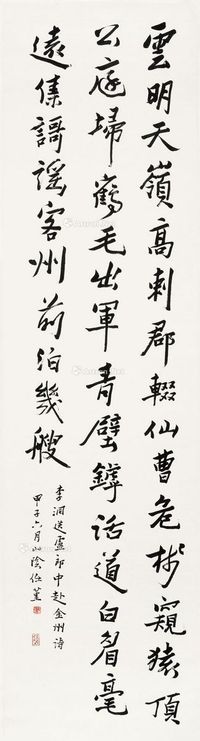 雲明天嶺高刺郡輟仙曹危棧窺猿頂
公庭掃鶴毛出軍青壁罅話道白眉毫
遠集謌謡客州前泊幾艘
李洞送盧郎中赴金州詩
甲子六月山陰任堇